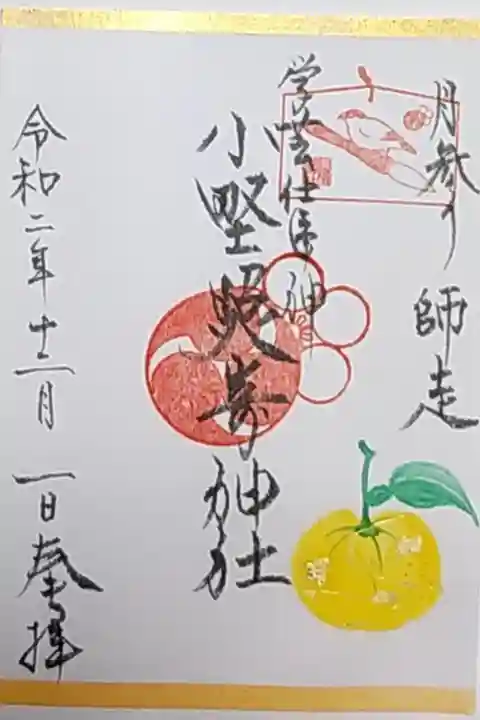 月参り 師走
学芸仕事神
小野照崎神社
令和二年十二月 一日奉拝